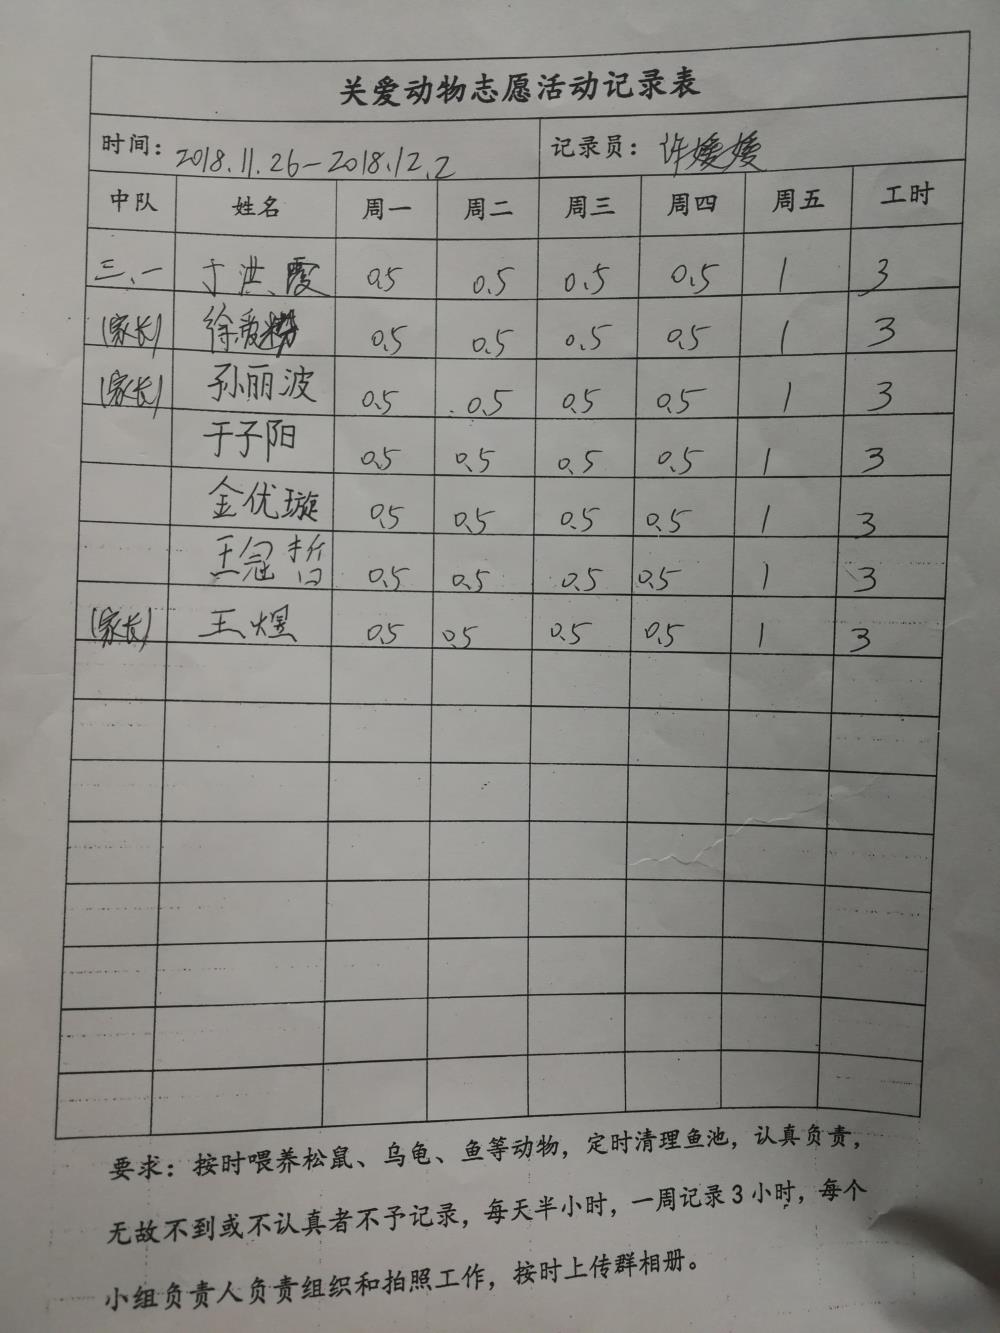 关爱动物志愿活动记录表
时间：2018.11.26—2018.12.2 记录员：许媛媛
中队 姓名 周一 周二 周三 周四 周五 工时
三、一 于洪霞 0.5 0.5 0.5 0.5 1 3
(家长) 徐爱 0.5 0.5 0.5 0.5 1 3
(家长) 孙丽波 0.5 0.5 0.5 0.5 1 3
于子阳 0.5 0.5 0.5 0.5 1 3
金优璇 0.5 0.5 0.5 0.5 1 3
王冠哲 0.5 0.5 0.5 0.5 1 3
(家长) 王煜 0.5 0.5 0.5 0.5 1 3
要求：按时喂养松鼠、乌龟、鱼等动物，定时清理鱼池，认真负责，
无故不到或不认真者不予记录，每天半小时，一周记录3小时，每个
小组负责人负责组织和拍照工作，按时上传群相册。